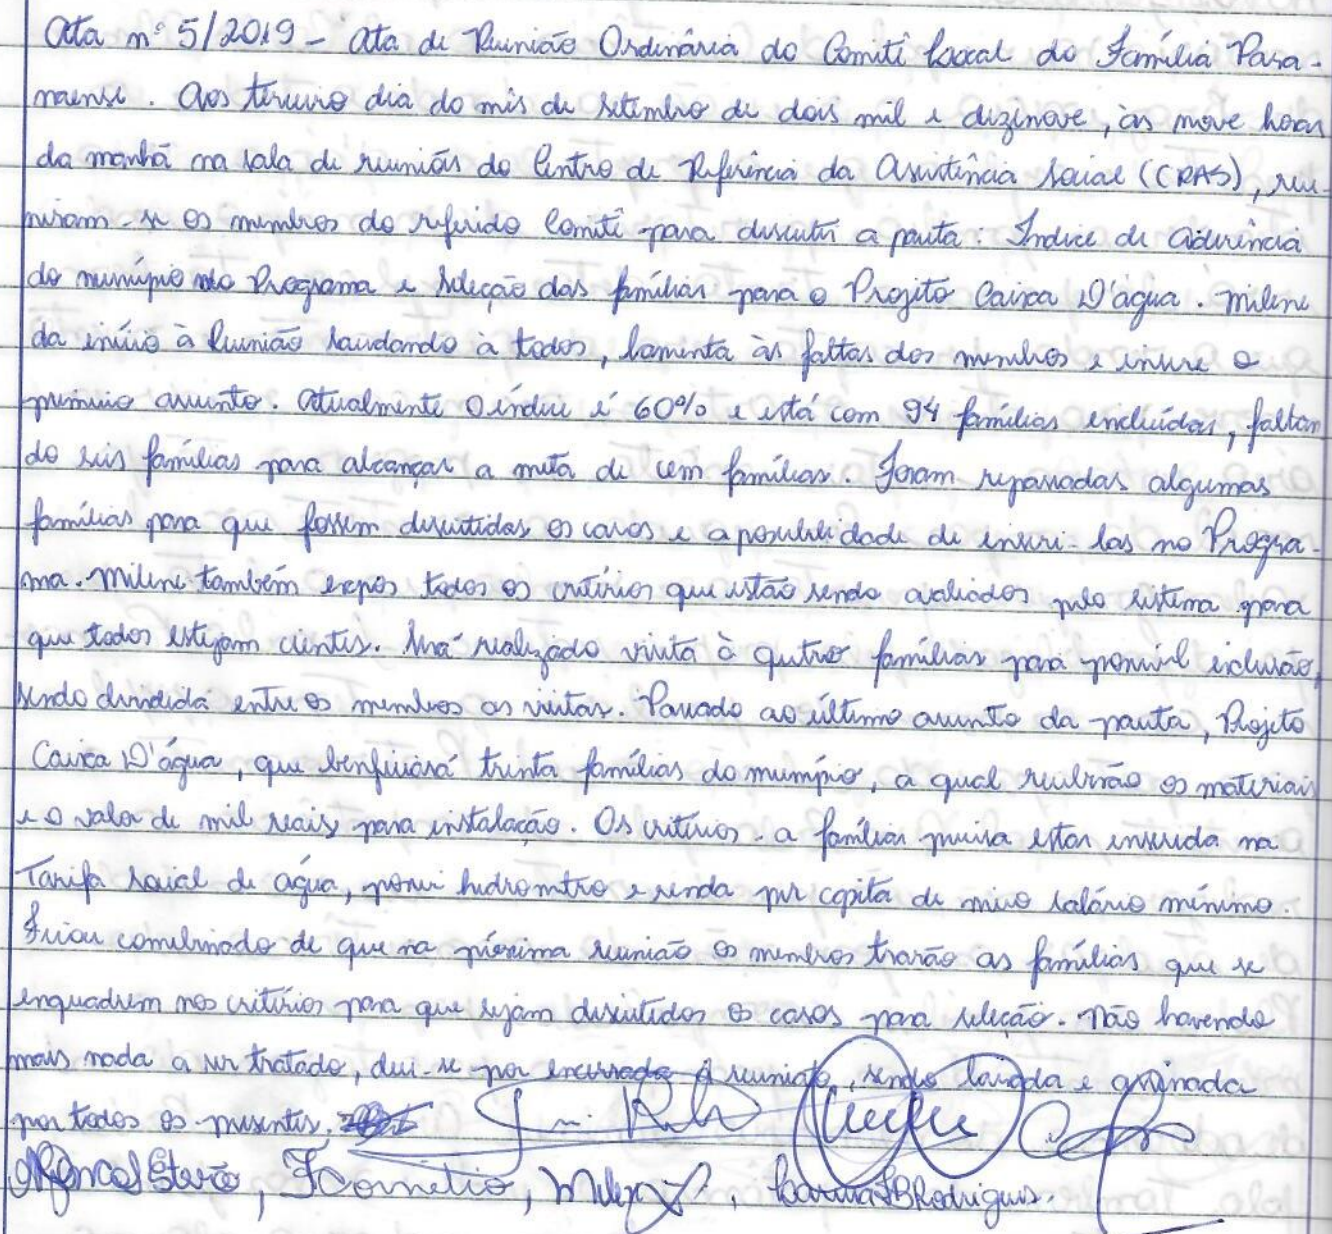 Ata nº 5/2019 - Ata de Reunião Ordinária do Comitê Local do Família Para-
naense. Aos terceiro dia do mês de setembro de dois mil e dezenove, às nove horas
da manhã na sala de reuniões do Centro de Referência da Assistência Social (CRAS), reu-
niram-se os membros do referido Comitê para discutir a pauta: Índice de aderência
do município no Programa e seleção das famílias para o Projeto Caixa D'água. Milene
da início à Reunião saudando à todos, lamenta às faltas dos membros e insere o
primeiro assunto. Atualmente o índice é 60% e está com 94 famílias incluídas, faltan
do seis famílias para alcançar a meta de cem famílias. Foram repassadas algumas
famílias para que fossem discutidas os casos e a possibilidade de inseri-las no Progra-
ma. Milene também expôs todos os critérios que estão sendo avaliados pelo sistema para
que todos estejam cientes. Será realizado visita à qutro famílias para possível inclusão,
sendo dividida entre os membros as visitas. Passado ao último assunto da pauta, Projeto
Caixa D'água, que benficiará trinta famílias do município, a qual receberão os materiais
e o valor de mil reais para instalação. Os critérios - a famílias precisa estar inserida na
Tarifa Social de água, possui hidromtro e renda per capita de meio salário mínimo.
Ficou combinado de que na próxima reunião os membros trarão as famílias que se
enquadrem nos critério para que sejam discutidos os casos para seleção. Não havendo
mais nada a ser tratado, deu-se por encerrada a reunião, sendo lavrada e assinada
por todos os presentes.
, FCornelio, , BRodrigues.